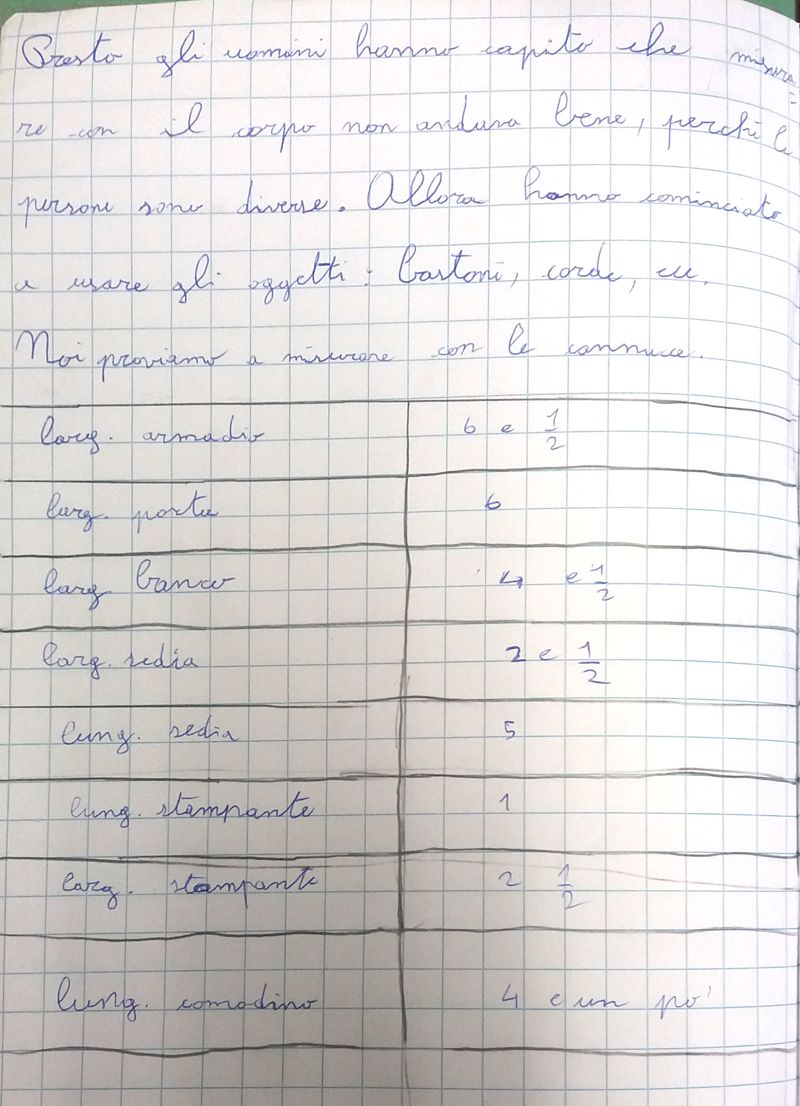 Presto gli uomini hanno capito che misura=
re con il corpo non andava bene, perché le
persone sono diverse. Allora hanno cominciato
a usare gli oggetti: bastoni, corde, ecc.
Noi proviamo a misurare con le cannucce.
larg. armadio 6 e 1/2
larg. porta 6
larg. banco 4 e 1/2
larg. sedia 2 e 1/2
lung. sedia 5
lung. stampante 1
larg. stampante 2 1/2
lung. comodino 4 e un po'